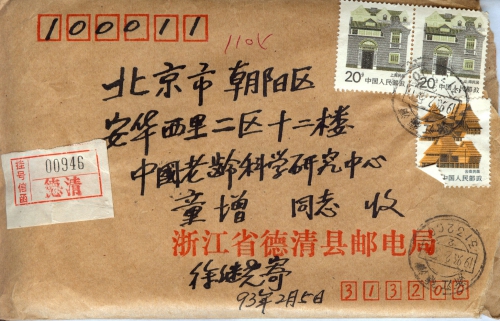 100011
110%
20分 中国人民邮政
20分 中国人民邮政
中国人民邮政
北京市朝阳区
安华西里二区十二楼
中國老龄科学研究中心
童增 同志 收
挂号信函
00946
德清
浙江省德清县邮电局
徐继尧寄
93年2月5日
313200